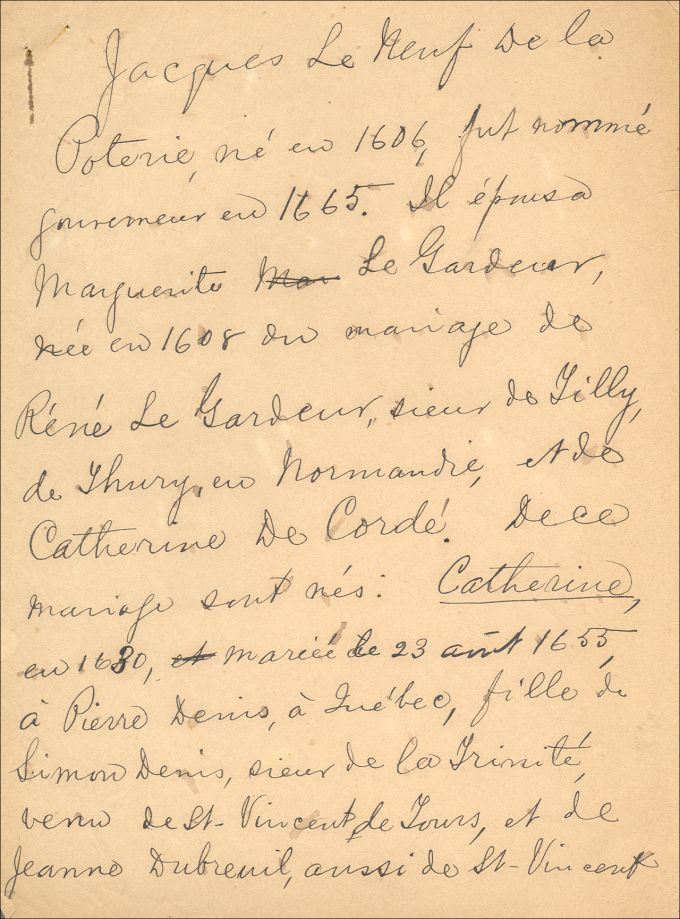 Jacques Le Neuf De la
Poterie, né en 1606, fut nommé
gouverneur en 1665. Il épousa
Marguerite Mar Le Gardeur,
née en 1608 du mariage de
Réné Le Gardeur, sieur de Tilly,
de Thury, en Normandie, et de
Catherine De Cordé. De ce
mariage sont nés: Catherine,
en 1630, et mariée le 23 août 1655,
à Pierre Denis, à Québec, fille de
Simon Denis, sieur de la Trinité,
venu de St-Vincent de Tours, et de
Jeanne Dubreuil, aussi de St-Vincent